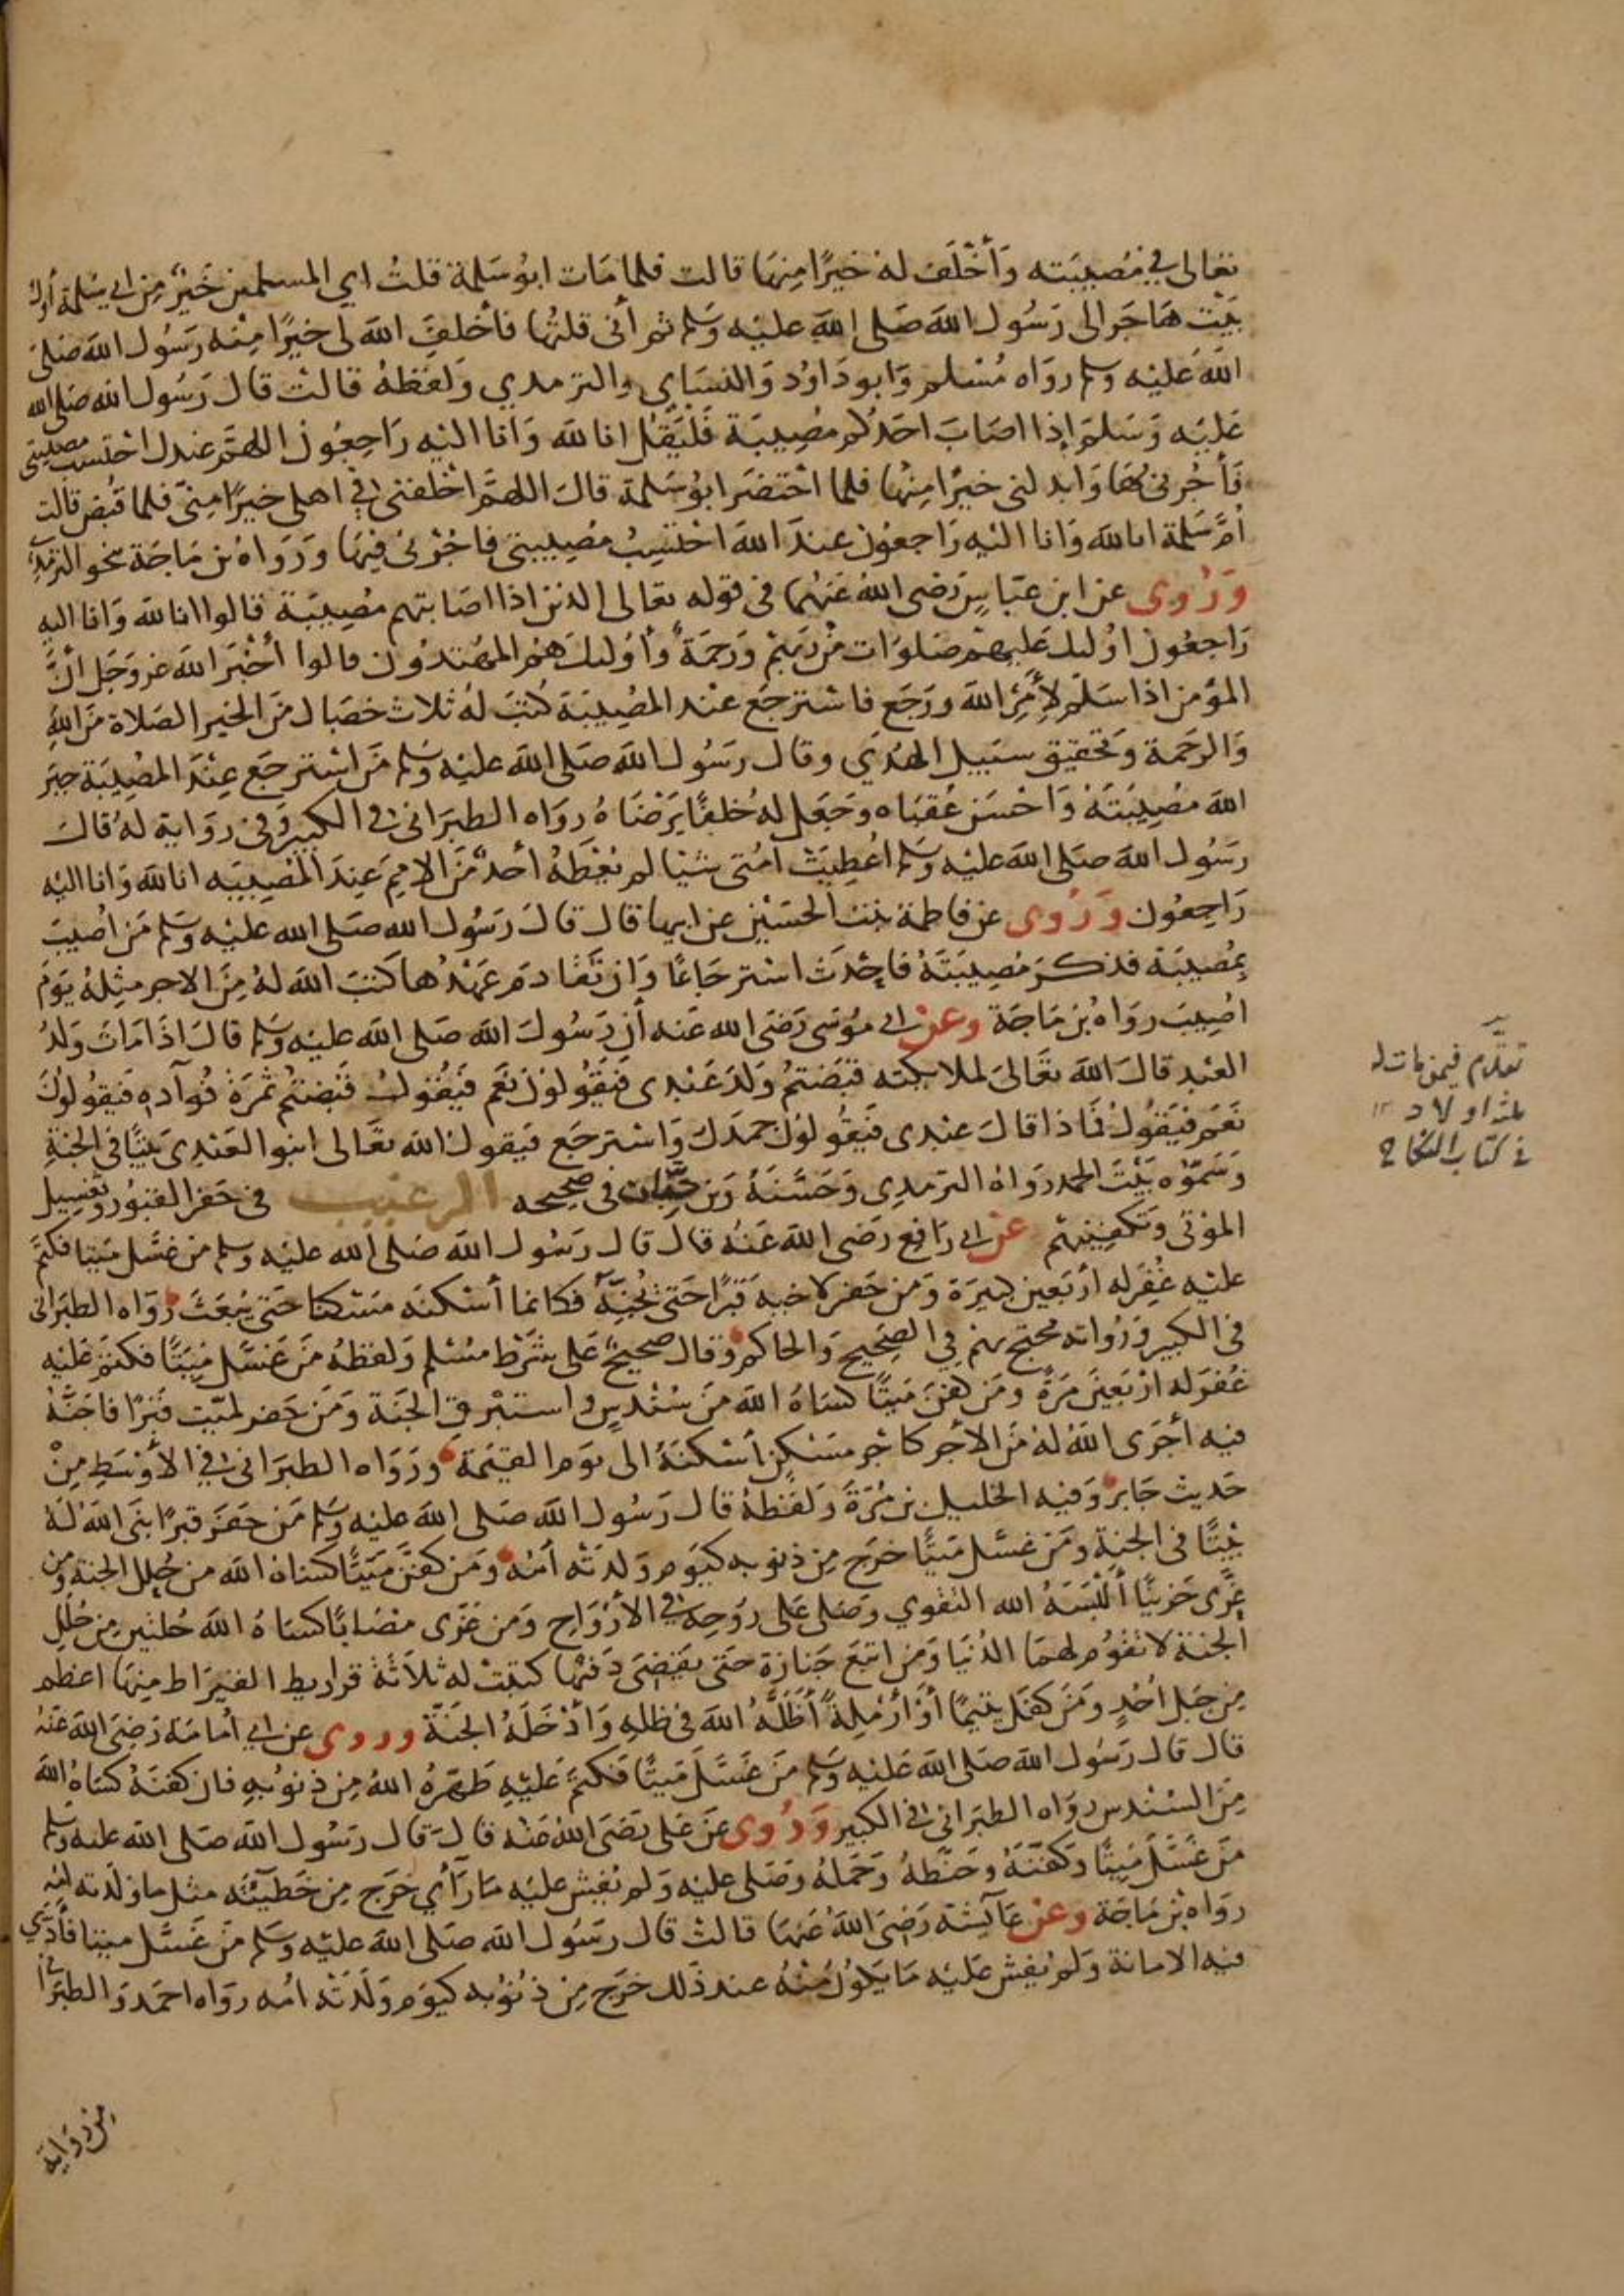 تعالى في مُصيبَته وَأَخْلَفَ لهُ خيرًا مِنهَا قالت فلما مَات ابوُ سَلمة قلتُ اي المسلمين خَيْرٌ مِن ابي سَلمة أول
بَيْت هَاجَر الى رَسُول الله صَلى الله عليْه وَسَلم ثم أنى قلتُها فأخلفَ الله لى خيرًا مِنْه رَسُول الله صَلى
الله عَليْه وسلم روَاه مُسْلم وَابو دَاوُد وَالنسَاي والترمدي وَلفظهُ قالتْ قال رَسُول الله صَلى الله
عَليْه وَسَلمَ إذا اصَابَ احَدكُم مصُيِبَة فَليَقُل انا لله وَانا اليْه رَاجِعُون اللهمَّ عندك احتسبُ مصيبتى
فَأجُرنى بهَا وَابدلنى خيرًا مِنهَا فلما احْتضَرَ ابوُ سَلمة قال اللهمَّ اخلفنى فى اهلى خيرًا مِنى فلما قبُض قالت
اُمُّ سَلمة انا لله وَانا اليْه رَاجعُون عندَ الله احْتسِبُ مُصِيبتى فاجُرْنى فيهَا وَرَوَاهُ بن مَاجَة نحو الترمذي
وَرُوى عن ابن عبَاسٍ رَضى الله عَنهُمَا فى قوله تعالى الدين اذا اصَابتهم مُصِيبَة قالوا انا لله وَانا اليه
رَاجعُون اوُليك عَليهمْ صَلوَات مِّن رَبهِمْ وَرَحمَةٌ وأوُليكَ همُ المهُتدوُن قالوا أخْبَرَ الله عز وَجَل أنَّ
المؤمن اذا سَلمَ لأمْرِ الله ورَجَع فاسْترجَعَ عنْد المصُيِبَة كُتبَ لهُ ثلاث خصَال مَن الخير الصَلاة مَن اللهِ
وَالرحَمة وَتحقيق سبَيل الهدَي وقال رَسُول الله صَلى الله عليْه وَسَلم مَن اسْترجَعَ عِنْدَ المصُيِبَة جبر
الله مصُيِبَتَهُ وَاحْسَنَ عُقبَاه وجَعَل لهُ خُلفًا يَرْضَاهُ روَاه الطبَرانى فى الكبير وَفى روَاية لهُ قال
رسَوُل الله صَلى الله عليْه وَسَلم اُعْطِيَتْ اُمَّتى شيْا لم يُعْطَهُ أحدٌ مّن الامِمَ عِندَ المُصِيبَه انا لله وَانا اليْه
رَاجِعُون وَرُوى عن فاطمة بنت الحسَيْن عن ابيها قال قال رَسُول الله صَلى الله عليْه وَسَلم مَن اُصيبَ
بِمُصيبَة فذكرَ مُصِيبَتَهُ فاحْدَثَ استرجَاعًا وَان تَقَادمَ عَهْدُها كَتبَ الله لهُ مِنَ الاجر مثِلهُ يَوَمَ
اُصِيبَ روَاهُ بن مَاجَة وعنْ ابي موُسَى رَضَى الله عَنه أن رَسُول الله صَلى الله عليْه وَسَلم قال اذَا مَاتَ وَلدُ
العبْد قال الله تعَالىَ لملايكته قبَضتمُ وَلدَ عَبْدِى فيَقُولوُنَ نعَم فيَقُول قبَضتُم ثمَرَةَ فوُآدهِ فَيقوُلوُنَ
نعَم فيَقوُلُ مَاذا قال عبْدى فيَقُولوُنَ حمَدَكَ وَاسْترجَع فيَقول الله تعَالى ابنوا لعَبْدِى بَيْتًا فى الجنةِ
وَسَمّوْه بَيْتَ الحمد رَوَاهُ الترمدِى وَحَسَّنَهُ وَبن حِبَّان فى صحِيحه الترغيب فى حَفر القبوُر وَتغسِيل
الموْتى وَتكفِينهمْ عنْ ابي رَافِعٍ رَضى الله عَنْهُ قال قال رَسُول الله صَلى الله عليْه وسلم من غسَّل مَيتا فكتمَ
عليْه غُفِرَ له أربَعين كبيَرة وَمن حَفر لاخيه قَبْرًا حَتى يُجِنَّهُ فكانما أسْكنَه مَسْكنا حَتى يُبْعَثَ رَوَاه الطبَرانى
فى الكبير وَرُواته محُتج بهم فى الصَحيح وَالحاكم وقال صحَيحٌ عَلى شرْط مسُلم وَلفظهُ مَن غَسَّل مَيِّتًا فكتمَ عَليْه
غُفرَ له ارْبَعِينَ مَرَّة ومَن كفنَ مَيتًا كسَاهُ الله مَن سُنْدسٍ وَاستبْرق الجَنة وَمَن حَفر لميّت قَبْرًا فاجَنَّهُ
فيه أجْرَى اللهُ لهُ مَن الأجر كاجْرِ مسَكنٍ أسْكنَهُ الى يوَم القيَمة وَرَوَاه الطبَرانى في الأوْسَطِ مِنْ
حَديث جَابر وَفيه الخليل بن مُرَّةَ وَلفظهُ قال رَسُول الله صَلى الله عليْه وَسَلم مَن حَفَرَ قبرًا بنَى الله لهُ
بيْتًا فى الجنة ومَن غسَّل مَيتًا خرَج مِن ذنوبه كيَوم وَلدَتْه اُمهُ وَمَن كفّنَ مَيَتًا كسَاهُ الله من حُلل الجنة وَمن
عزَّى حَزينًا ألبَسَهُ الله التقوي وصَلى عَلى رُوحِه فى الأرْوَاح وَمن عَزى مصَابًا كسَاهُ الله حُلتيْنِ مِن حُلل
الجنة لا تقوُم لهمَا الدُنيَا وَمن اتبَعَ جَنازة حَتى يقَضى دَفنهَا كتبَتْ له ثلاَثَة قراريط القيرَاط مِنهَا اعظم
مِن جَبل اُحُدٍ ومَن كفَل يَتيمًا أوْ أرْمَلةً أَظلَّهُ الله فى ظلهِ وَأدْخَلهُ الجَنَة وروى عن ابي اُمامَة رَضِىَ الله عَنهُ
قال قال رَسُول الله صَلى الله عَليْه وَسَلم مَن غَسَّلَ مَيتًا فَكتمَ عَليْهِ طهَّرهُ اللهُ مِن ذنوُبهِ فان كفنَهُ كسَاهُ الله
مِن السُنْدس روَاه الطبَرانى فى الكبير وَرُوى عَن عَلى رَضىَ الله عَنه قال قال رسَوُل الله صَلى الله عليه وسلم
مَن غَسَّلَ مَيِّتًا وكفَّنَهُ وحَنَّطهُ وَحَمَلهُ وَصَلى عليْه وَلم يُفِش عليْه مَا رَآي خرَج مِن خَطيئتِه مثل ما وَلدَته اُمُه
روَاه بن مَاجَة وعَن عَآيشة رَضِىَ الله عَنهَا قالتْ قال رسَوُل الله صَلى الله عليْه وسَلم مَن غَسَّل ميتا فأدَّي
فيه الامانة وَلم يُفِش عَليْه مَا يَكوُنُ مِنْهُ عند ذَلك خرَج مِن ذنوُبه كيوَم وَلَدَتْه اُمه روَاه احمَد وَالطبَرانى
من رواية
تقدّم فيمن مات له
ثلثة اولاد ١٢
في كتاب النكاح